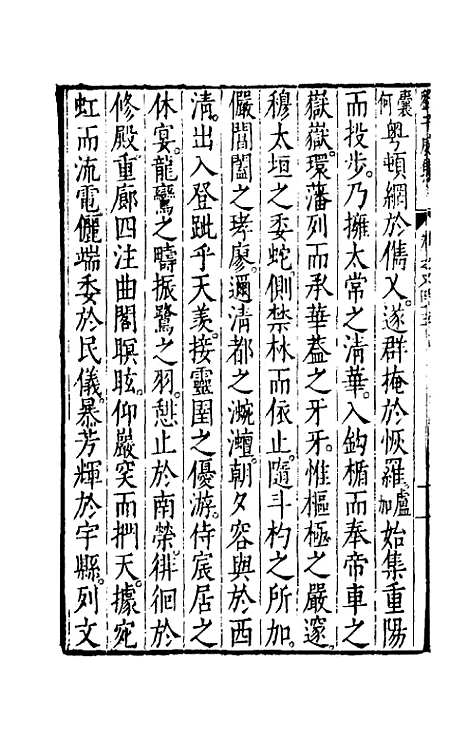 囊何粤頓網於儁乂。遂群掩於恢羅。盧加始集重陽
而投步。乃擁太常之淸華。入鈎楯而奉帝車之
嶽嶽。環藩列而承華葢之牙牙。惟樞極之嚴邃。
穆太垣之委蛇。側禁林而依止。隨斗杓之所加。
儼閶闔之㟉廖。邇淸都之涴澶。朝夕容與於西
淸。出入登跐乎天羡。接靈圉之優游。侍宸居之
休宴。龍鸞之疇振鷺之羽。憇止於南榮。徘徊於
修殿重廊四注曲閣暝眩。仰嚴突而捫天。據宛
虹而流電儷端委於民儀。暴芳輝於宇縣。列文